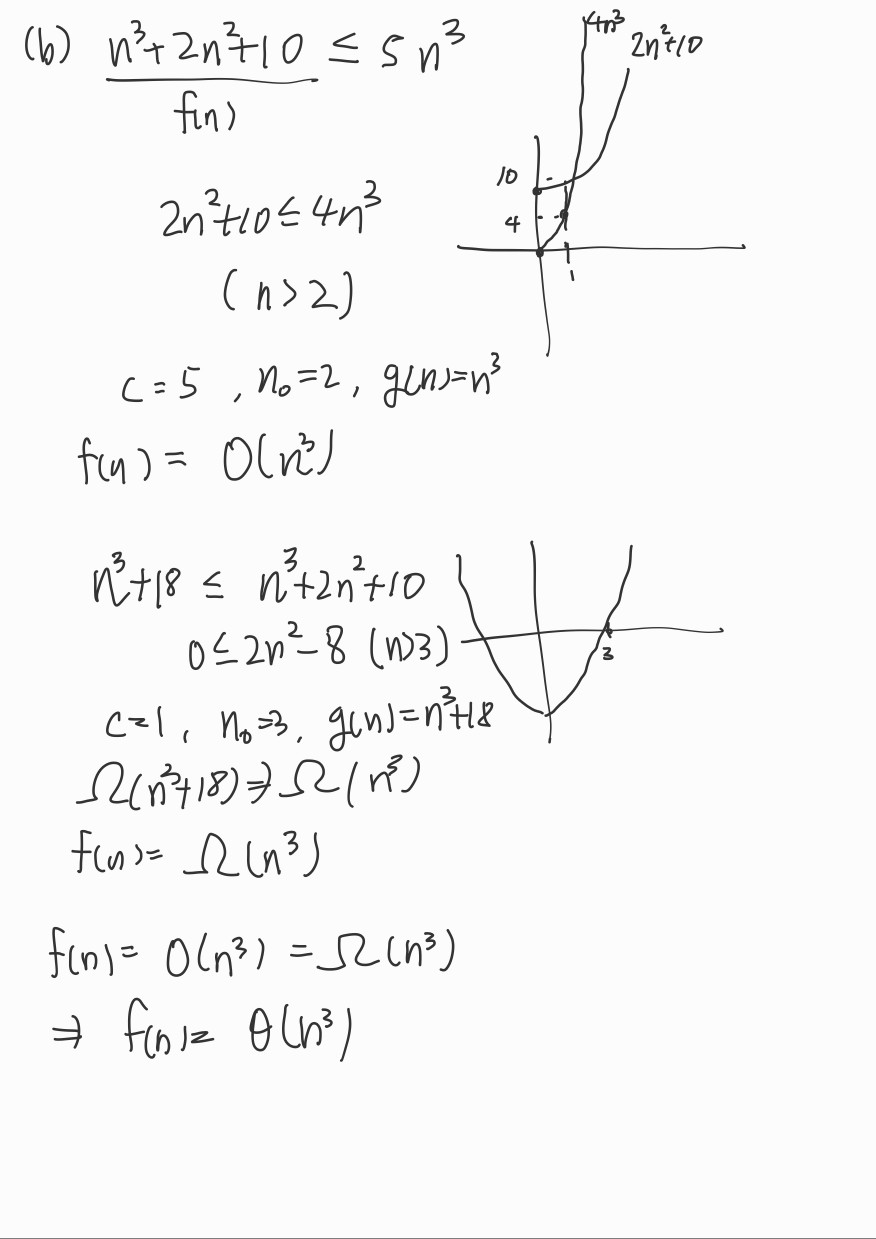 (b) n³+2n²+10 ≤ 5n³
f(n)
4n³
2n²+10
10
4
1
2n²+10 ≤ 4n³
(n>2)
c=5, n₀=2, g(n)=n³
f(n) = O(n³)
n³+18 ≤ n³+2n²+10
0 ≤ 2n²-8 (n>3)
3
c=1, n₀=3, g(n)=n³+18
Ω(n³+18) ⇒ Ω(n³)
f(n) = Ω(n³)
f(n) = O(n³) = Ω(n³)
⇒ f(n) = θ(n³)